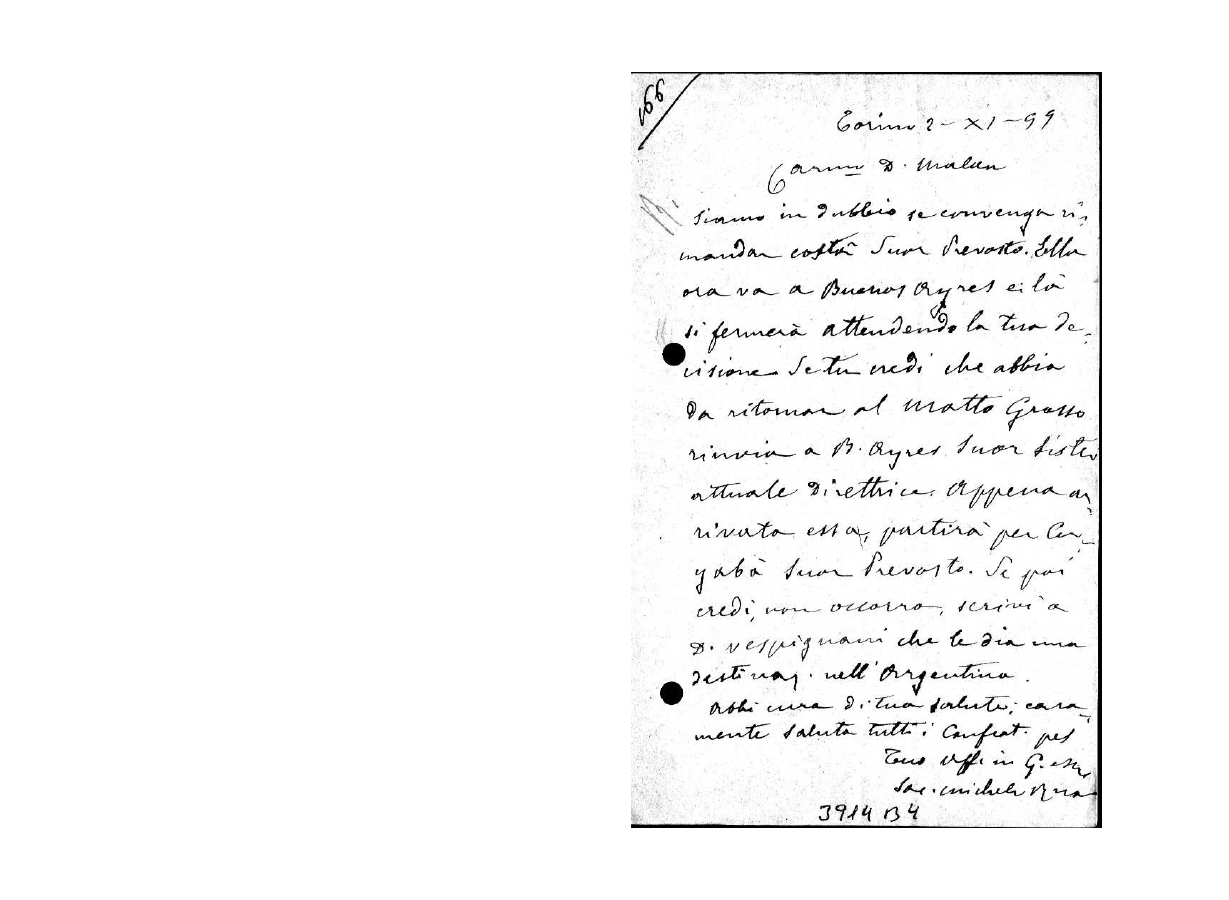 166
Torino 2 - XI - 99
Carmo D. Malan
Siamo in dubbio se convenga ri-
mandar costà Suor Prevosto. Ella
ora va a Buenos Ayres e là
si fermerà attendendo la tua de-
cisione. Se tu credi che abbia
da ritornar al Matto Grosso
rinvia a B. Ayres Suor
attuale Direttrice. Appena ar-
rivata essa, partirà per Cu-
yabà Suor Prevosto. Se poi
credi non occorra, scrivi a
D. Vespignani che le dia una
destinaz. nell'Argentina.
Abbi cura di tua salute; cara-
mente saluta tutti i Confrat. pel
Tuo aff. in G. e
Sac. Michele Rua
3914 B4